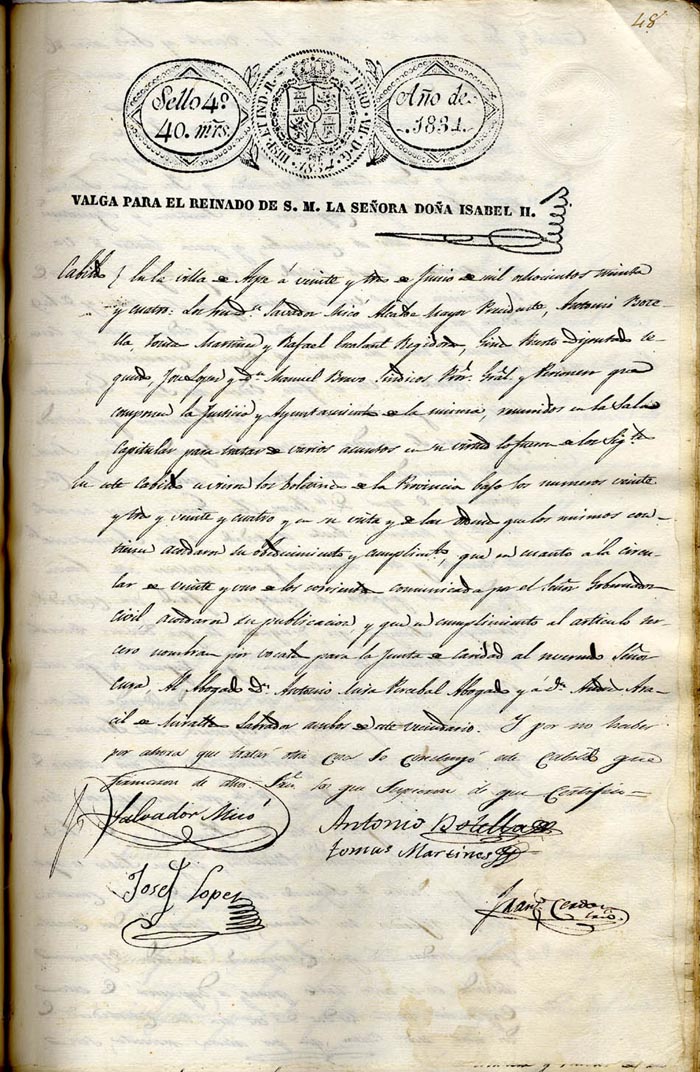 48
Sello 4º
40. mrs.
HISP. ET IND. R. FERD. VII. D. G.
1834
Año de
1834.
VALGA PARA EL REINADO DE S. M. LA SEÑORA DOÑA ISABEL II.
Cabildo En la villa de Aspe á veinte y tres de Junio de mil ochocientos treinta
y cuatro: Los Salvador Micó Alcalde Mayor Presidente, Antonio Bote-
lla, Tomás Martines y Rafael Regidores, Gines Puerto Diputado
Jose Lopez y Dn. Manuel Bravo Sindicos Pror. Gral. y Personero que
componen la Justicia y Ayuntamiento de la misma, reunidos en la Sala
Capitular para tratar de varios asuntos en su virtud lo fueron de los Sigtes.
En este Cabildo se vieron los boletines de la Provincia bajo los numeros veinte
y tres y veinte y cuatro y en su vista y de las ordenes que los mismos con-
tienen acordaron su obedecimiento y cumplimto., que en cuanto á la circu-
lar de veinte y uno de los corrientes comunicada por el Señor Gobernador
civil acordaron su publicacion y que en cumplimiento al articulo ter-
cero nombran por vocales para la Junta de caridad al reverendo Señor
Cura, Al Abogado Dn. Antonio Abogado y á Dn.
de Miralles Labrador ambos de este vecindario. Y por no haber
por ahora que tratar otra cosa se concluyó este Cabildo que
firmaron de dhos. Sres. los que Supieron de que Certifico =
Salvador Micó
Antonio Botella
tomas Martines
Josef Lopez